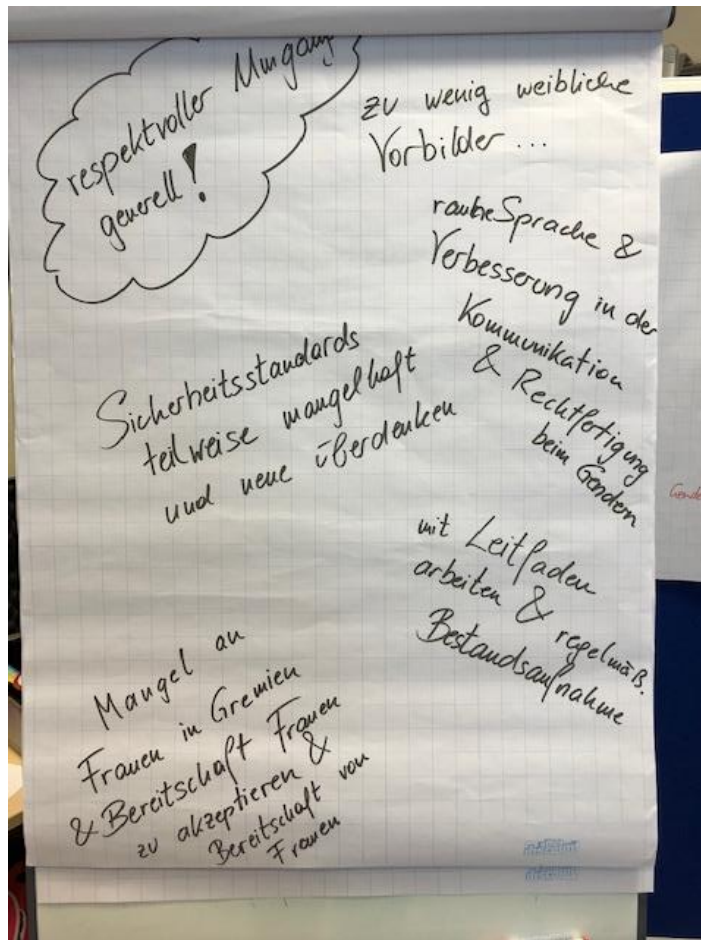 respektvoller Umgang
generell!
zu wenig weibliche
Vorbilder ...
rauhe Sprache &
Verbesserung in der
Kommunikation
& Rechtfertigung
beim Gendern
Sicherheitsstandards
teilweise mangelhaft
und neue überdenken
mit Leitfaden
arbeiten & regelmäß.
Bestandsaufnahme
Mangel an
Frauen in Gremien
& Bereitschaft Frauen
zu akzeptieren &
Bereitschaft von
Frauen
Gende